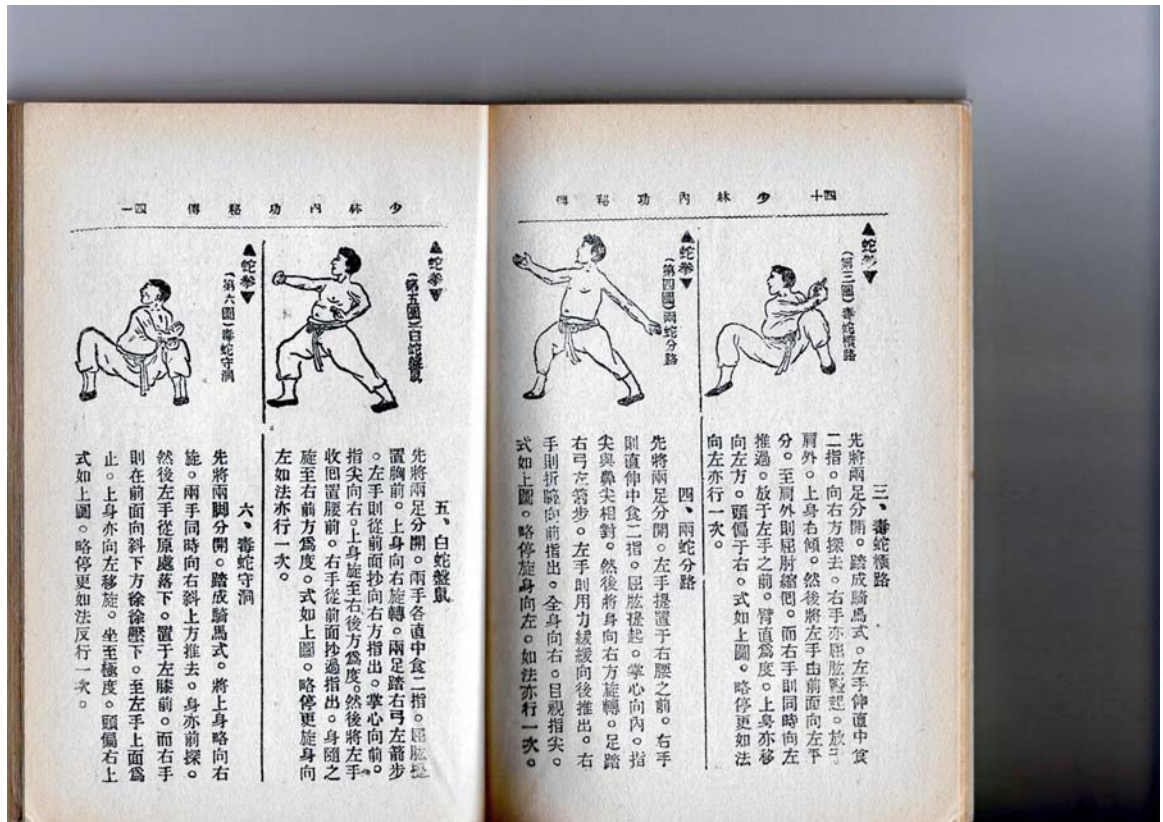 四十　少林內功秘傳
▲蛇拳▼
(第三圖)毒蛇橫路
三、毒蛇橫路
先將兩足分開。踏成騎馬式。左手伸直中食
二指。向右方探去。右手亦屈肱豎起。放于
肩外。上身右傾。然後將左手由前面向左平
分。至肩外則屈肘縮囘。而右手則同時向左
推過。放于左手之前。臂直爲度。上身亦移
向左方。頭偏于右。式如上圖。略停更如法
向左亦行一次。
▲蛇拳▼
(第四圖)兩蛇分路
四、兩蛇分路
先將兩足分開。左手提置于右腰之前。右手
則直伸中食二指。屈肱提起。掌心向內。指
尖與鼻尖相對。然後將身向右方旋轉。足踏
右弓左箭步。左手則用力緩緩向後推出。右
手則折腕向前指出。全身向右。目視指尖。
式如上圖。略停旋身向左。如法亦行一次。
少林內功秘傳　四一
▲蛇拳▼
(第五圖)白蛇盤鼠
五、白蛇盤鼠
先將兩足分開。兩手各直中食二指。屈肱提
置胸前。上身向右旋轉。兩足踏右弓左箭步
。左手則從前面抄向右方指出。掌心向前。
指尖向右。上身旋至右後方爲度。然後將左手
收囘置腰前。右手從前面抄過指出。身隨之
旋至右前方爲度。式如上圖。略停更旋身向
左如法亦行一次。
▲蛇拳▼
(第六圖)毒蛇守洞
六、毒蛇守洞
先將兩脚分開。踏成騎馬式。將上身略向右
旋。兩手同時向右斜上方推去。身亦前探。
然後左手從原處落下。置于左膝前。而右手
則在前面向斜下方徐徐壓下。至左手上面爲
止。上身亦向左移旋。坐至極度。頭偏右上
式如上圖。略停更如法反行一次。